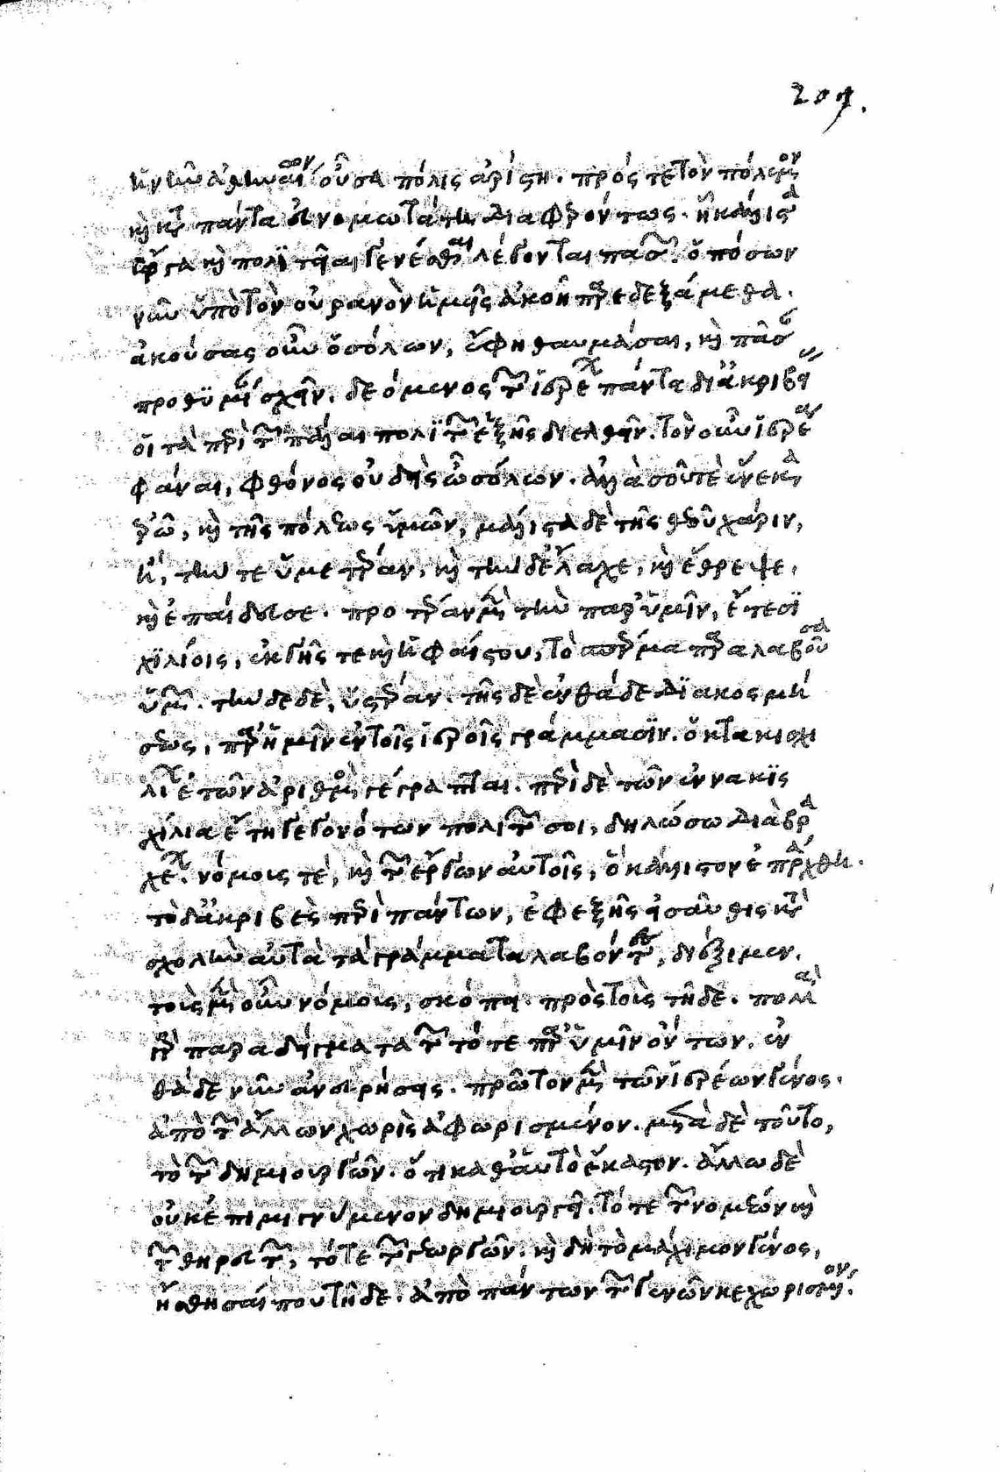 209.
ἡ νῦν ἀθηναίων οὖσα πόλις ἀρίστη. πρός τε τὸν πόλεμον
καὶ κατὰ πάντα εὐνομωτάτη διαφερόντως. ᾗ κάλλιστα
ἔργα καὶ πολιτεῖαι γενέσθαι λέγονται πασῶν. ὁπόσων
νῦν ὑπὸ τὸν οὐρανὸν ἡμεῖς ἀκοὴν παρεδεξάμεθα.
ἀκούσας οὖν ὁ σόλων, ἔφη θαυμάσαι, καὶ πᾶσαν
προθυμίαν σχεῖν. δεόμενος τῶν ἱερέων πάντα δι ἀκριβείας
οἱ τὰ περὶ τῶν πάλαι πολιτῶν ἑξῆς διελθεῖν. τὸν οὖν ἱερέα
φάναι, φθόνος οὐδεὶς ὦ σόλων. ἀλλὰ σοῦ τὲ ἕνεκα
ἐρῶ, καὶ τῆς πόλεως ὑμῶν, μάλιστα δὲ τῆς θεοῦ χάριν,
ἣ, τήν τε ὑμετέραν, καὶ τήνδε ἔλαχε, καὶ ἔθρεψε,
καὶ ἐπαίδευσε. προτέραν μὲν τὴν παρ' ὑμῖν, ἔτεσι
χιλίοις, ἐκ γῆς τε καὶ ἡφαίστου, τὸ σπέρμα παραλαβοῦσα
ὑμῶν. τήνδε δὲ, ὑστέραν. τῆς δὲ ἐνθάδε διακοσμή
σεως, παρ' ἡμῖν ἐν τοῖς ἱεροῖς γράμμασιν. ὀκτακισχι
λίων ἐτῶν ἀριθμὸς γέγραπται. περὶ δὲ τῶν ἐννακις
χίλια ἔτη γεγονότων πολιτῶν σοι, δηλώσω διὰ βρα
χέων. νόμους τὲ, καὶ τῶν ἔργων αὐτοῖς, ὃ κάλλιστον ἐπράχθη.
τὸ δ' ἀκριβὲς περὶ πάντων, ἐφεξῆς εἰσαῦθις κατὰ
σχολὴν αὐτὰ τὰ γράμματα λαβόντες, διέξιμεν.
τοὺς μὲν οὖν νόμους, σκόπει. πρὸς τοὺς τῇδε. πολλὰ
γὰρ παραδείγματα τῶν τότε παρ' ὑμῖν ὄντων, ἐν
θάδε νῦν ἀνευρήσεις. πρῶτον μὲν τῶν ἱερέων γένος.
ἀπὸ τῶν ἄλλων χωρὶς ἀφωρισμένον. μετὰ δὲ τοῦτο,
τὸ τῶν δημιουργῶν. ὅτι καθ' αὑτὸ ἕκαστον. ἄλλω δὲ
οὐκ ἐπιμιγνύμενον δημιουργεῖ. τό τε τῶν νομέων καὶ
τῶν θηρευτῶν, τό τε τῶν γεωργῶν. καὶ δὴ τὸ μάχιμον γένος,
ᾔσθησαί που τῇδε. ἀπὸ πάντων τῶν γενῶν κεχωρισμένον.